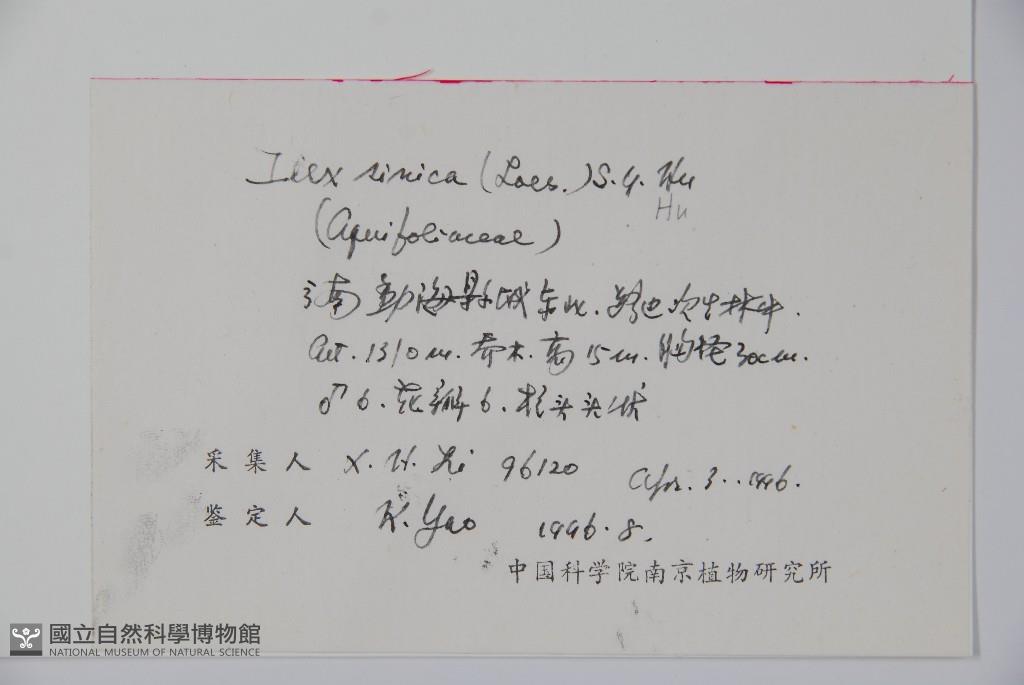 Ilex sinica (Loes.) S. Y. Hu
Hu
(Aquifoliaceae)
滇南勐海縣城东北. 路边次生林中.
alt. 1310 m. 乔木. 高 15 m. 胸径 30 cm.
♂ 6. 花瓣 6. 柱头头状
采集人 X. H. Li 96120 Apr. 3. 1996.
鉴定人 K. Yao 1996.8.
中国科学院南京植物研究所
國立自然科學博物館
NATIONAL MUSEUM OF NATURAL SCIENCE